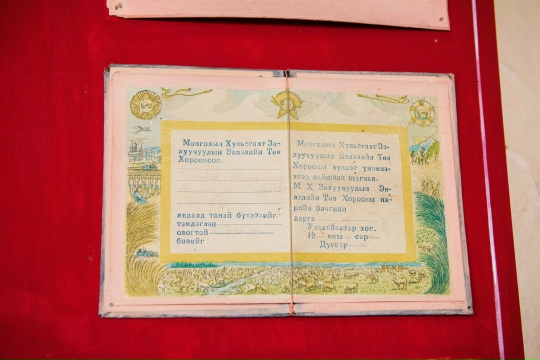 Монголын Хувьсгалт За-
луучуудын Эвлэлийн Төв
Хорооноос.
ивлэлд танай бүтээлийг
тэмдэглэн
овогтой
биеийг
Монголын Хувьсгалт За-
луучуудын Эвлэлийн Төв
Хорооны хүндэт үнэмлэ-
хээр сайшаан шагнав.
М. Х. Залуучуудын Эв-
лэлийн Төв Хорооны на-
рийн бичгийн
дарга
Улаанбаатар хот.
19 оны сар
Дугаар